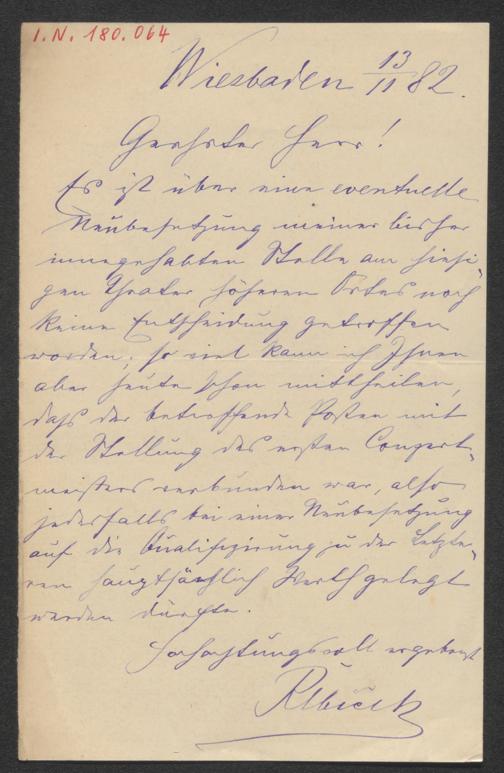 I.N. 180.064
Wiesbaden 13/11 82.
Geehrter Herr!
Es ist über eine eventuelle
Neubesetzung meiner bisher
innegehabten Stelle am hiesi-
gen Theater höheren Ortes noch
keine Entscheidung getroffen
worden; so viel kann ich Ihnen
aber heute schon mittheilen,
daß der betreffende Posten mit
der Stellung des ersten Conzert-
meisters verbunden war, also
jedesfalls bei einer Neubesetzung
auf die Qualifizirung zu der Letzte-
ren hauptsächlich Werth gelegt
werden dürfte.
Hochachtungsvoll ergebenst